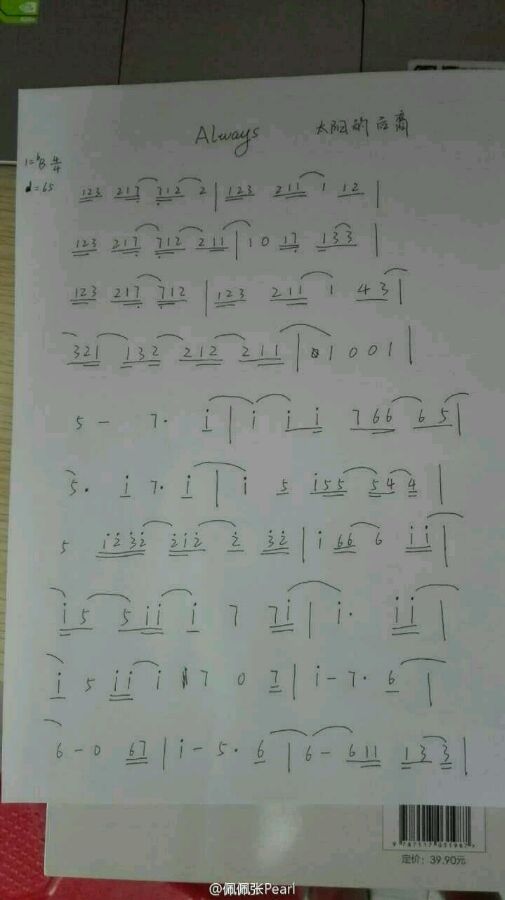 Always 太阳的后裔
1=ᵇB 4/4
♩=65
123 217 712 2 | 123 211 1 12 |
123 217 712 211 | 1 0 17 133 |
123 217 712 | 123 211 1 43 |
321 132 212 211 | 1 0 0 1 |
5 - 7· i | i i i 766 65 |
5· i 7· i | i 5 i55 54 4 |
5 i232 i2i2 2 32 | i 66 6 ii |
i5 5ii i 7 7i | i· ii |
i 5 ii i 7 0 7 | i - 7· 6 |
6 - 0 67 | i - 5· 6 | 6 - 611 13 3 |
定价: 39.90元
@佩佩张Pearl